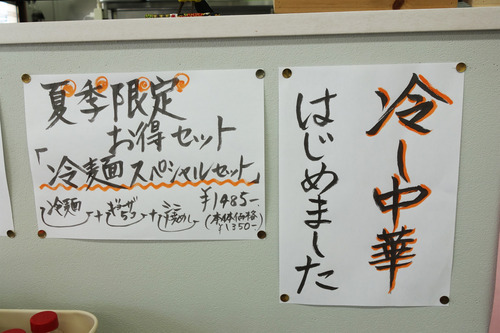 夏季限定
お得セット
「冷麺スペシャルセット」
冷麺+ギョーザ5コ+ミニ焼めし
¥1485-
(本体価格
¥1350-)
冷し中華
はじめました